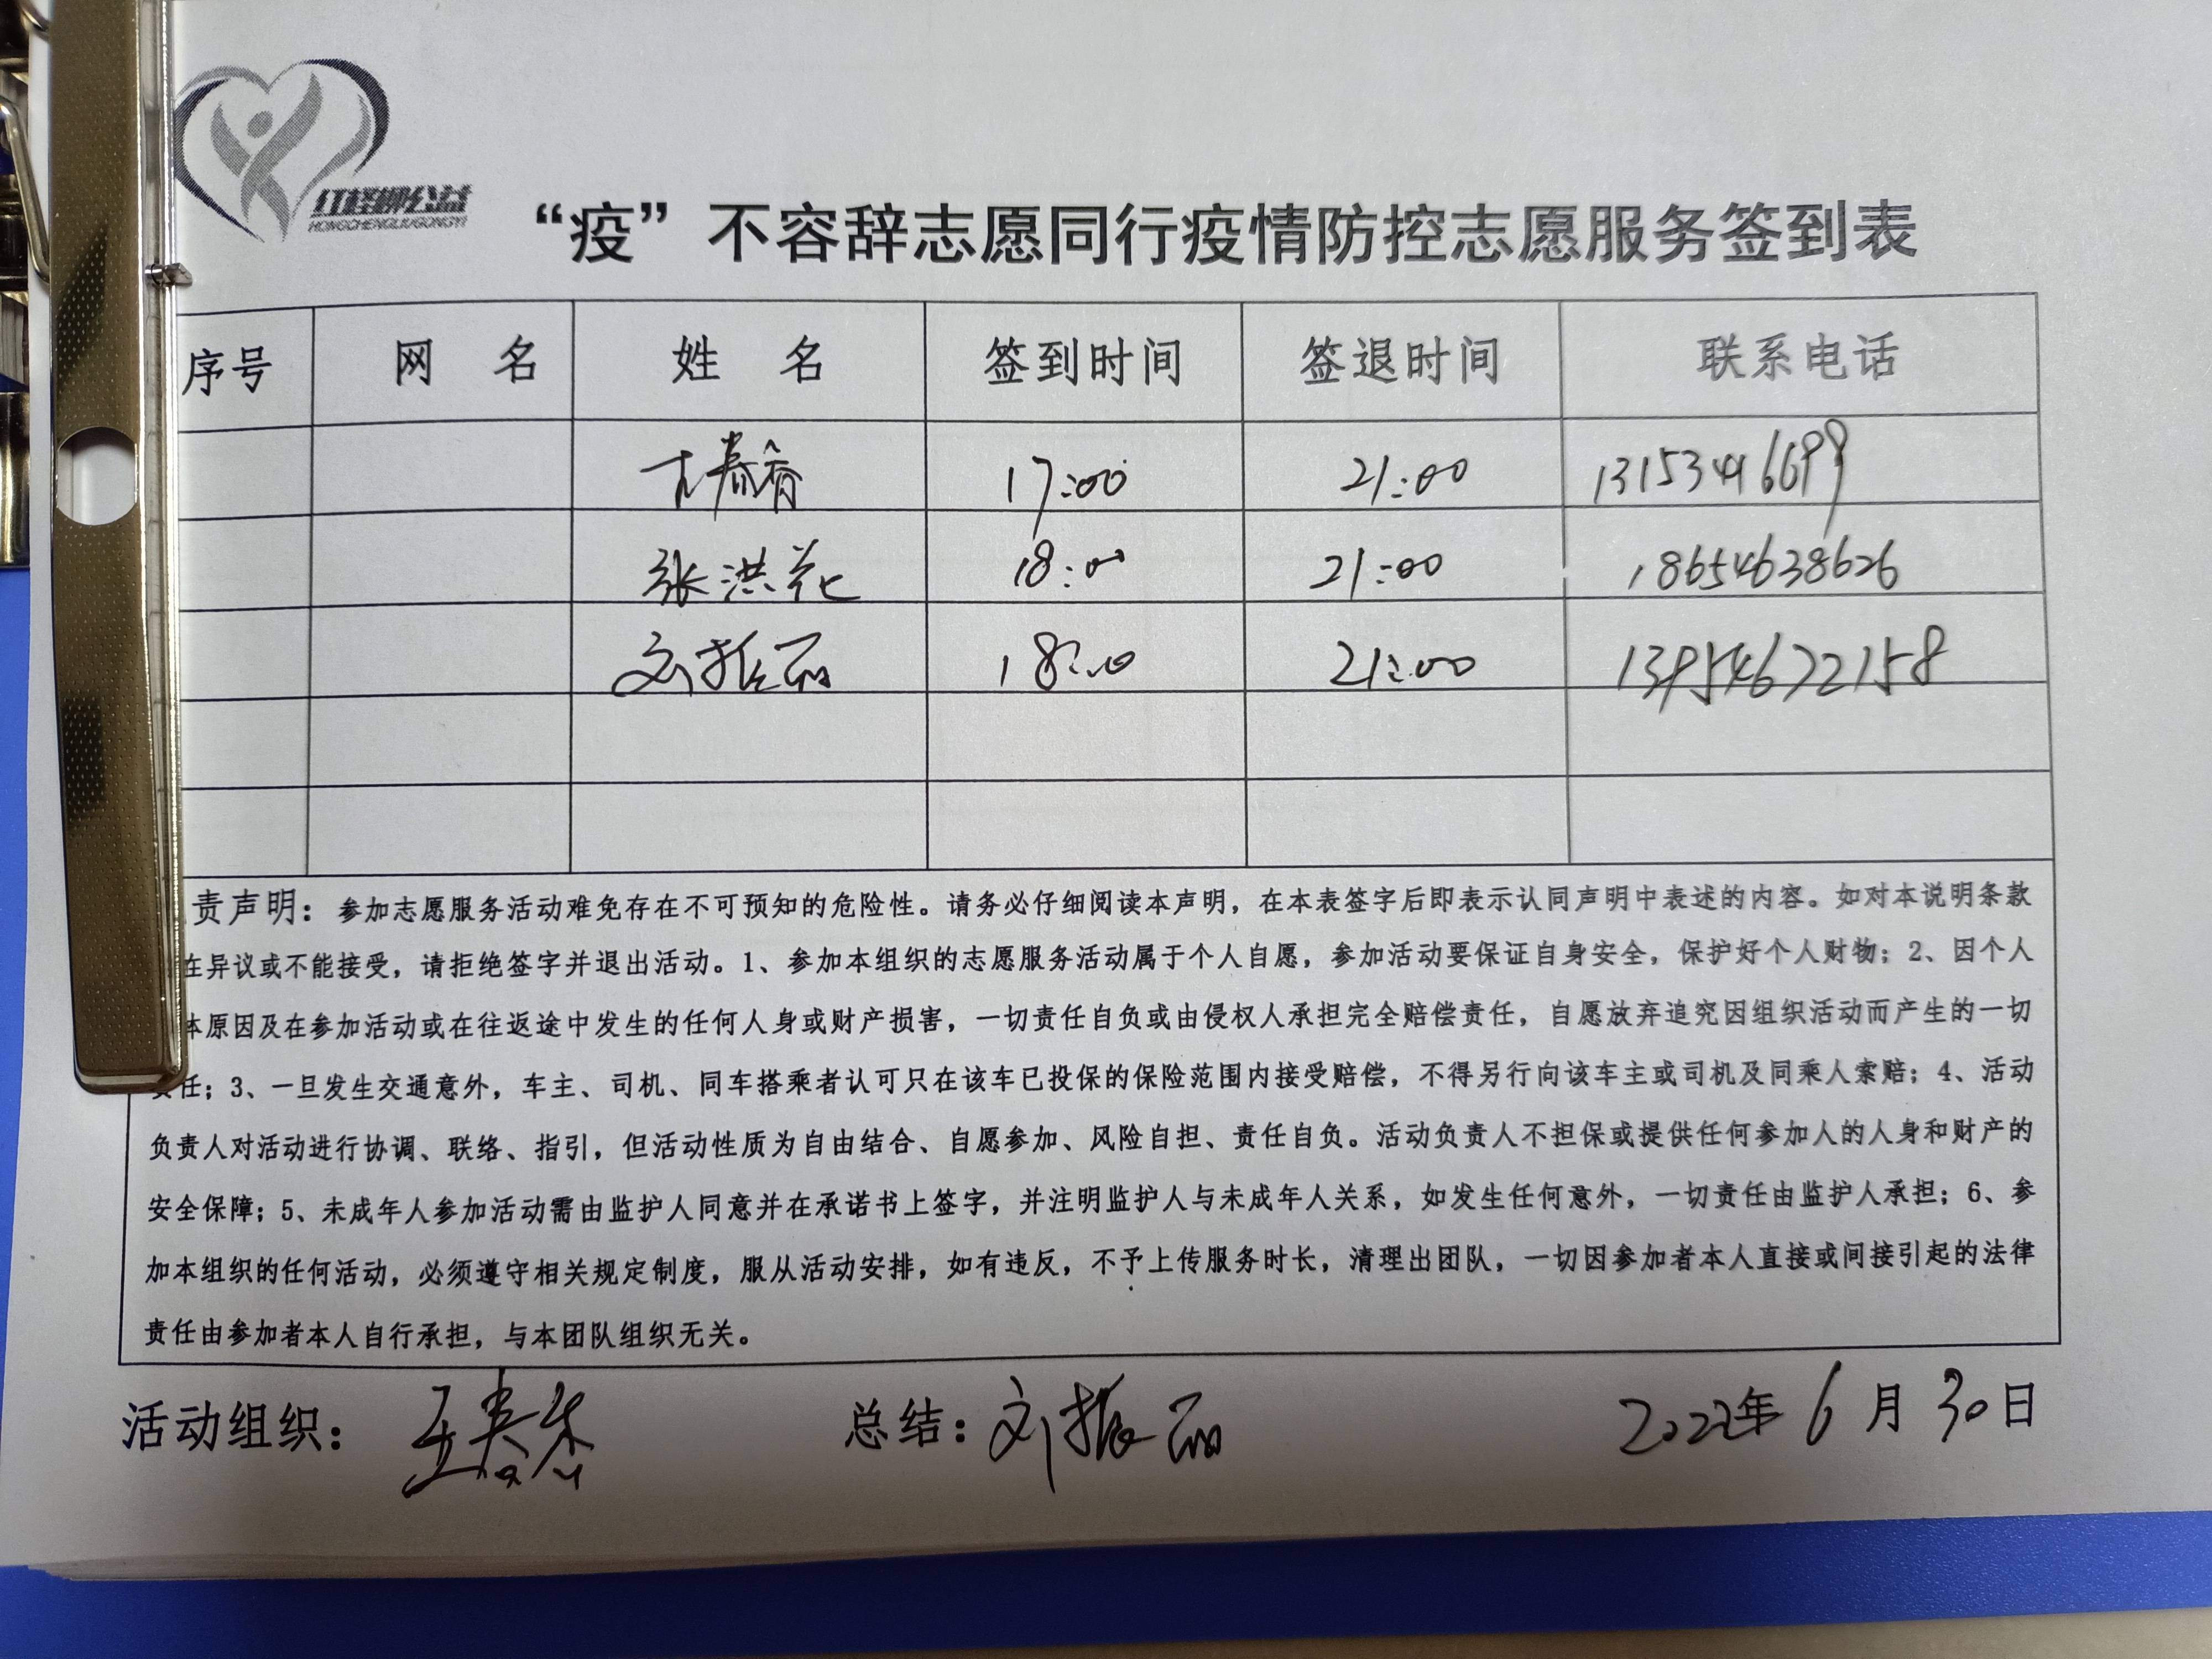 红柽柳公益
HONGCHENGLIUGONGYI
“疫”不容辞志愿同行疫情防控志愿服务签到表
序号 网 名 姓 名 签到时间 签退时间 联系电话
春香 17:00 21:00
张洪花 18:00 21:00 18654638626
刘振丽 18:00 21:00 13954672158
责声明：参加志愿服务活动难免存在不可预知的危险性。请务必仔细阅读本声明，在本表签字后即表示认同声明中表述的内容。如对本说明条款
在异议或不能接受，请拒绝签字并退出活动。1、参加本组织的志愿服务活动属于个人自愿，参加活动要保证自身安全，保护好个人财物；2、因个人
体原因及在参加活动或在往返途中发生的任何人身或财产损害，一切责任自负或由侵权人承担完全赔偿责任，自愿放弃追究因组织活动而产生的一切
责任；3、一旦发生交通意外，车主、司机、同车搭乘者认可只在该车已投保的保险范围内接受赔偿，不得另行向该车主或司机及同乘人索赔；4、活动
负责人对活动进行协调、联络、指引，但活动性质为自由结合、自愿参加、风险自担、责任自负。活动负责人不担保或提供任何参加人的人身和财产的
安全保障；5、未成年人参加活动需由监护人同意并在承诺书上签字，并注明监护人与未成年人关系，如发生任何意外，一切责任由监护人承担；6、参
加本组织的任何活动，必须遵守相关规定制度，服从活动安排，如有违反，不予上传服务时长，清理出团队，一切因参加者本人直接或间接引起的法律
责任由参加者本人自行承担，与本团队组织无关。
活动组织： 总结：刘振丽 2022年6月30日